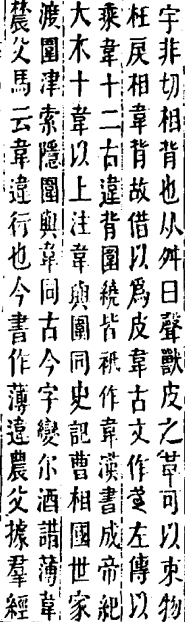 宇非切相背也从舛囗聲獸皮之韋可以束物
枉戾相韋背故借以爲皮韋古文作𡙝左傳以
乘韋十二古違背圍繞皆祇作韋漢書成帝紀
大木十韋以上注韋與圍同史記曹相國世家
渡圍津索隱圍與韋同古今字變尒酒誥薄韋
農父馬云韋違行也今書作薄違農父據羣經